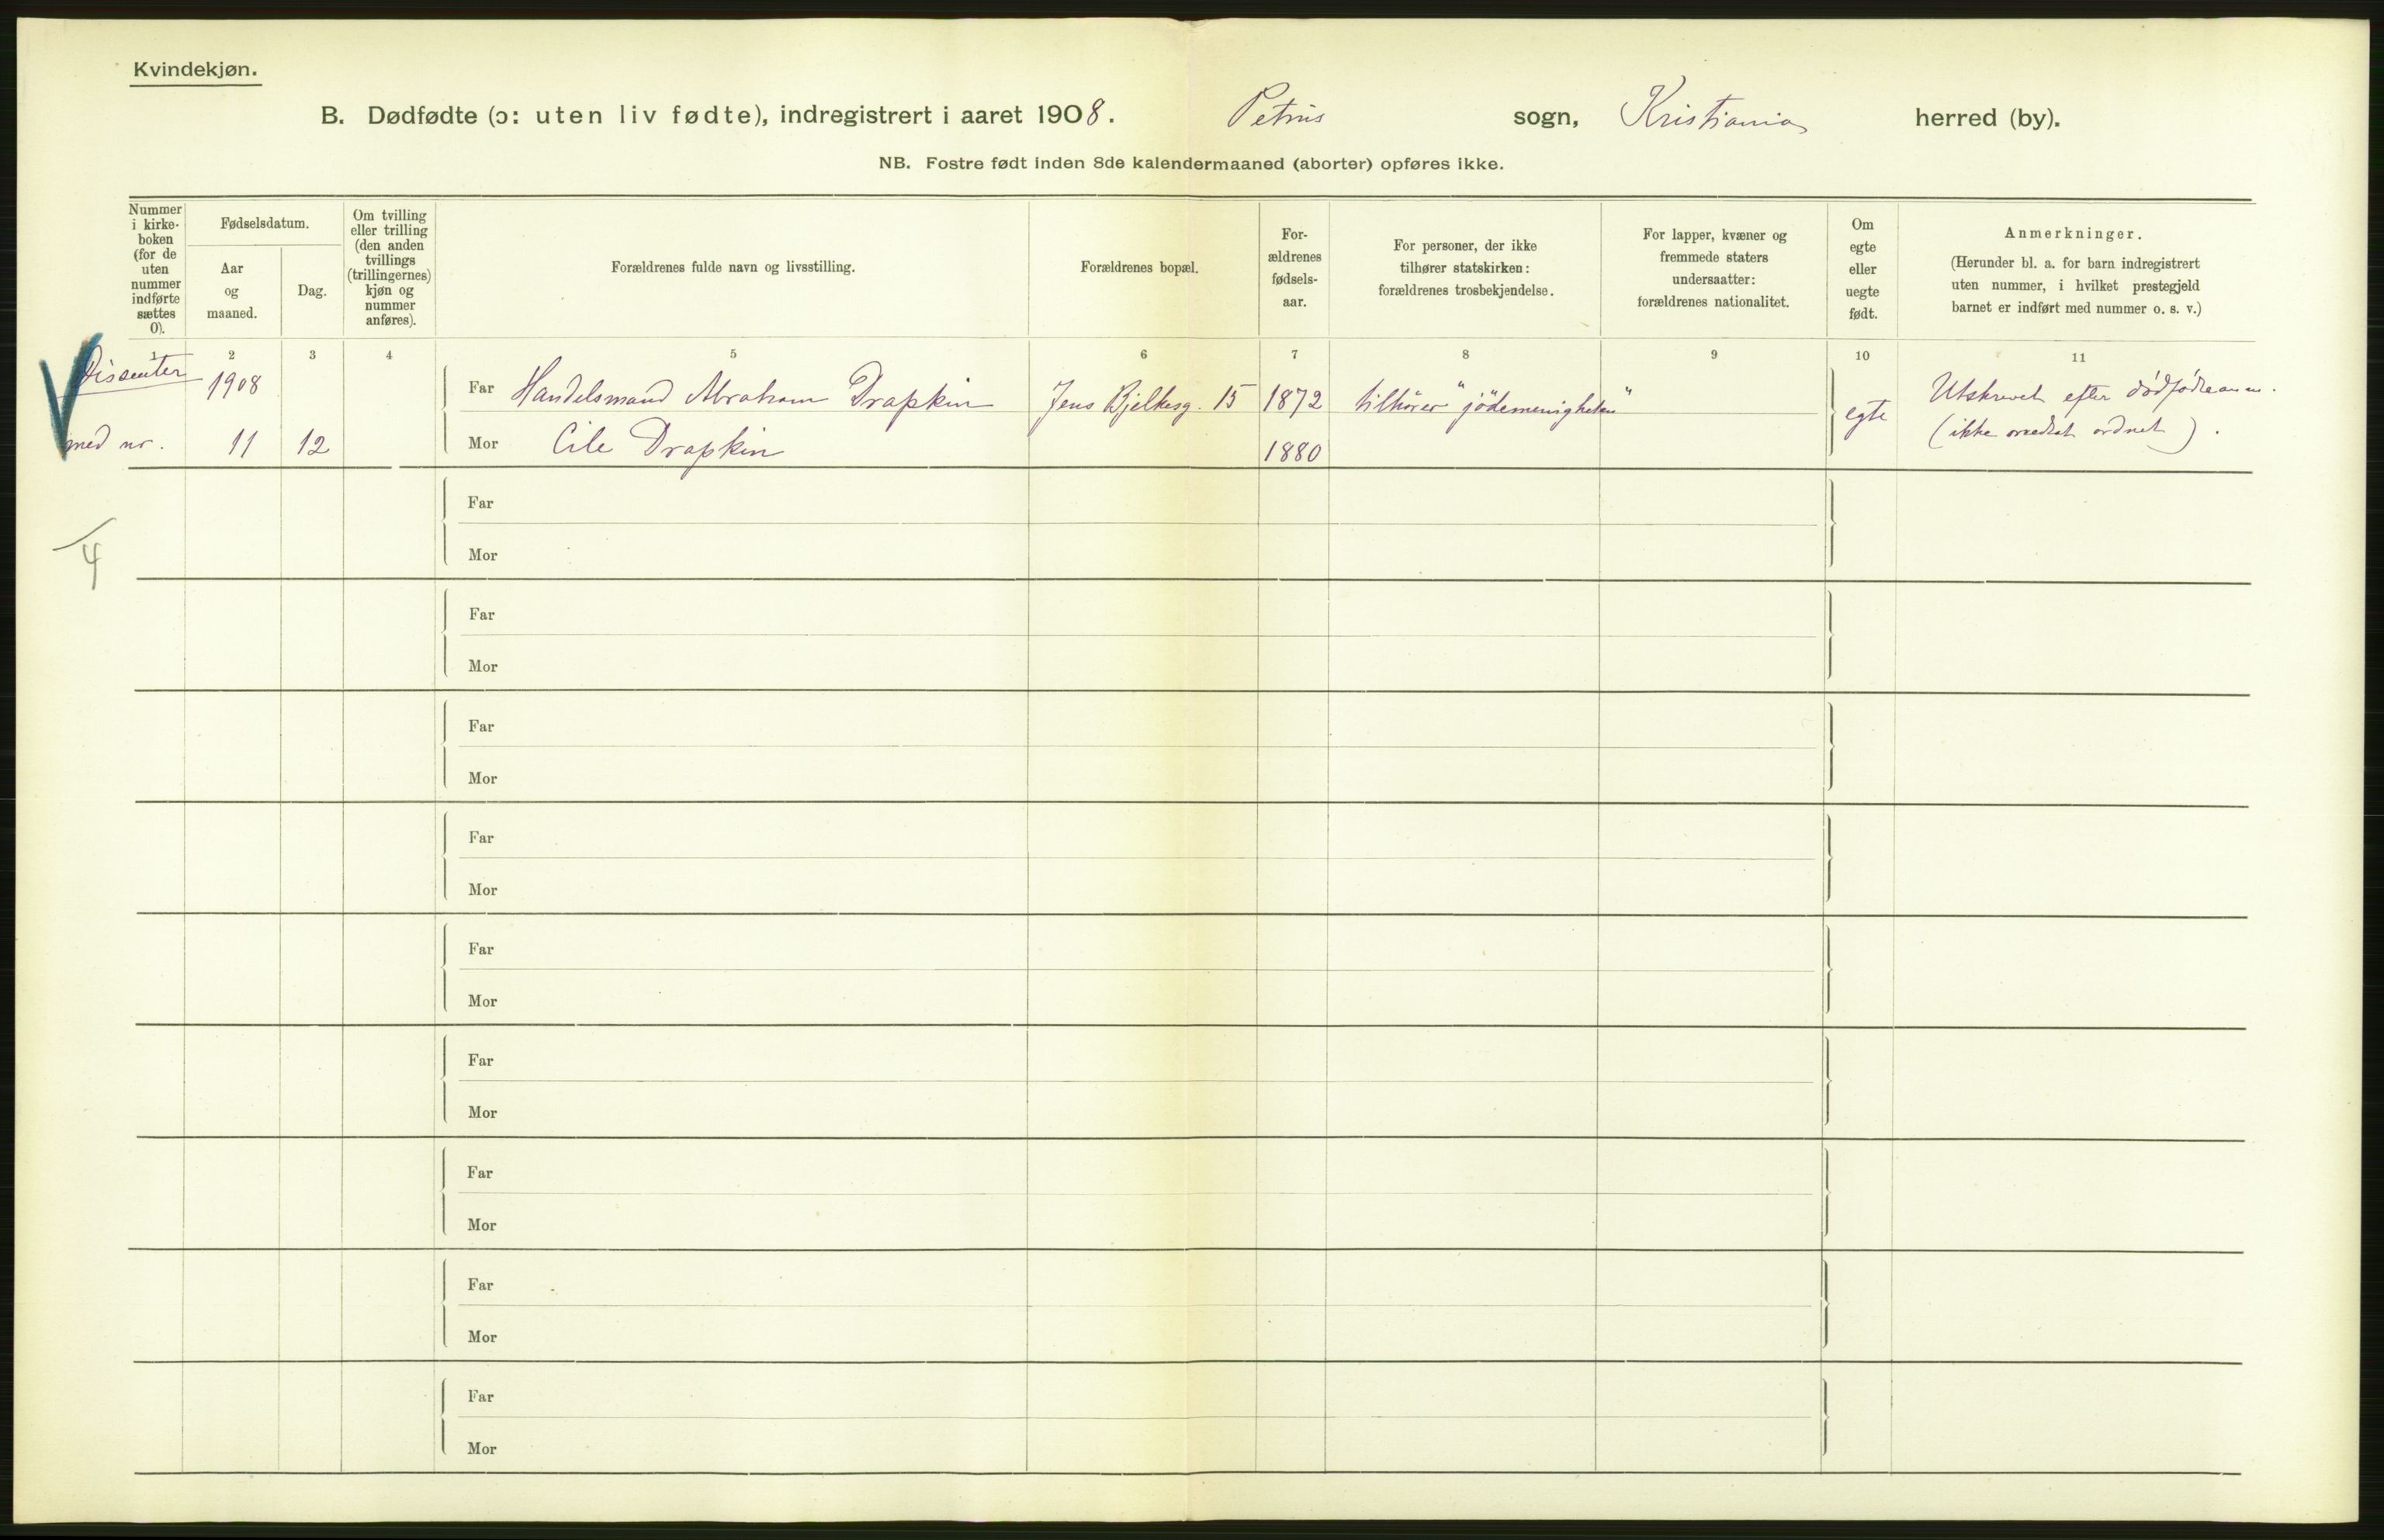 Kvindekjøn.
B. Dødfødte (ɔ: uten liv fødte), indregistrert i aaret 1908. Petrus sogn, Kristiania herred (by).
NB. Fostre født inden 8de kalendermaaned (aborter) opføres ikke.
Nummer
i kirke-
boken
(for de
uten
nummer
indførte
sættes
0).
Fødselsdatum.
Aar
og
maaned.
Dag.
Om tvilling
eller trilling
(den anden
tvillings
(trillingernes)
kjøn og
nummer
anføres).
Forældrenes fulde navn og livsstilling.
Forældrenes bopæl.
For-
ældrenes
fødsels-
aar.
For personer, der ikke
tilhører statskirken:
forældrenes trosbekjendelse.
For lapper, kvæner og
fremmede staters
undersaatter:
forældrenes nationalitet.
Om
egte
eller
uegte
født.
Anmerkninger.
(Herunder bl. a. for barn indregistrert
uten nummer, i hvilket prestegjeld
barnet er indført med nummer o. s. v.)
1 2 3 4 5 6 7 8 9 10 11
Dissenter 1908 Far Handelsmand Abraham Drapkin Jens Bjelkesg. 15 1872 tilhører "jødemenigheten" egte Utskrevet efter dødfødteanm.
med nr. 11 12 Mor Cile Drapkin 1880 (ikke ordnet).
Far
4
Mor
Far
Mor
Far
Mor
Far
Mor
Far
Mor
Far
Mor
Far
Mor
Far
Mor
Far
Mor